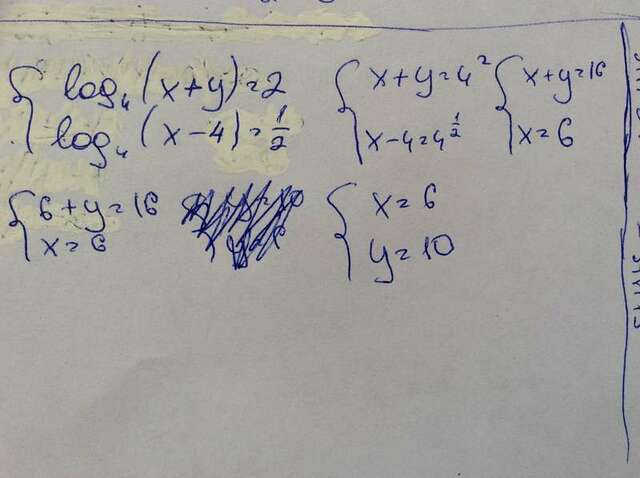 log₄(x+y)=2
log₄(x-4)=½
x+y=4²
x-4=4^½
x+y=16
x=6
6+y=16
x=6
x=6
y=10